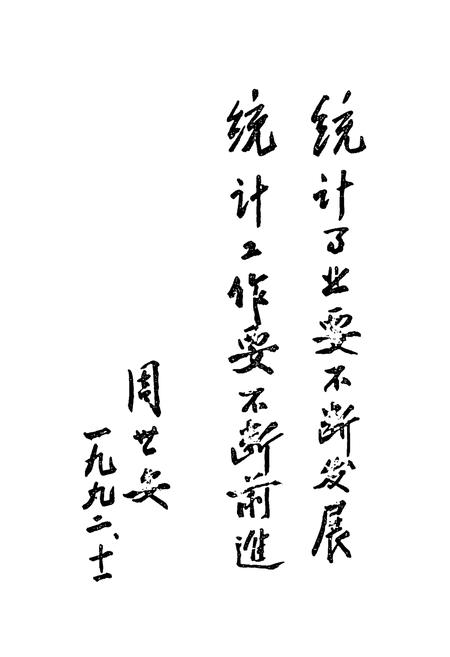 统计事业要不断发展
统计工作要不断前進
周世安
一九九二、十一